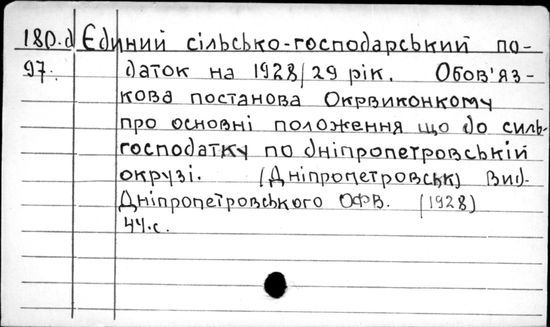 180.д Єдиний сільсько-господарський по-
97. даток на 1928/29 рік. Обов'яз-
кова постанова Окрвиконкому
про основні положення що до силь-
господатку по дніпропетровській
окрузі. (Дніпропетровськ) Вид.
Дніпропетровського ОФВ. (1928)
44.с.